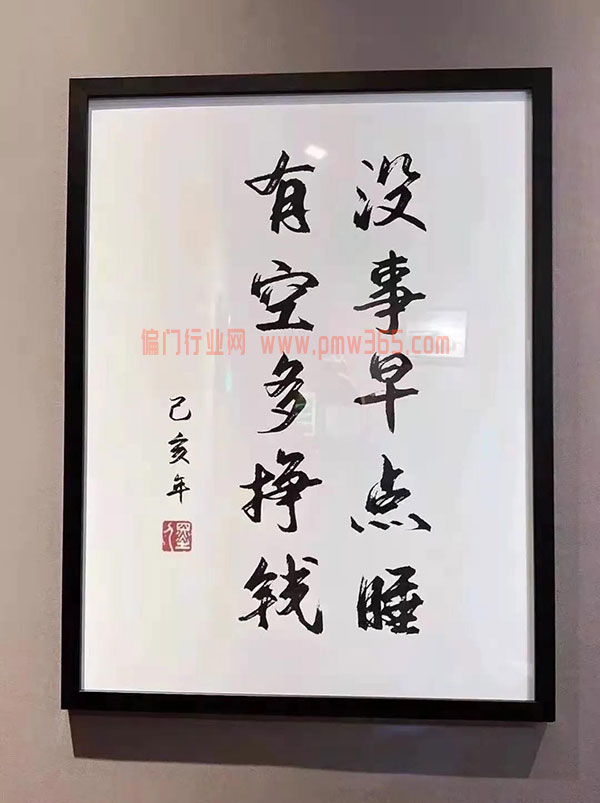 没事早点睡
有空多挣钱
己亥年
偏门行业网 www.pmw365.com